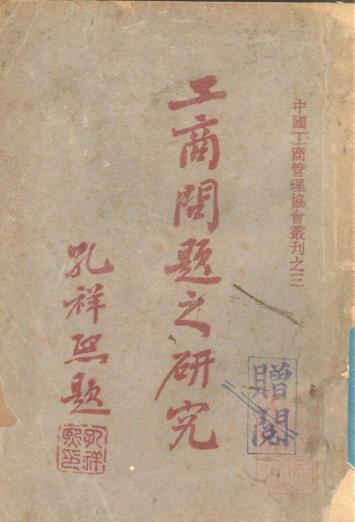 中國工商管理協會叢刊之三
工商問題之研究
孔祥熙題
孔祥熙印
贈閱